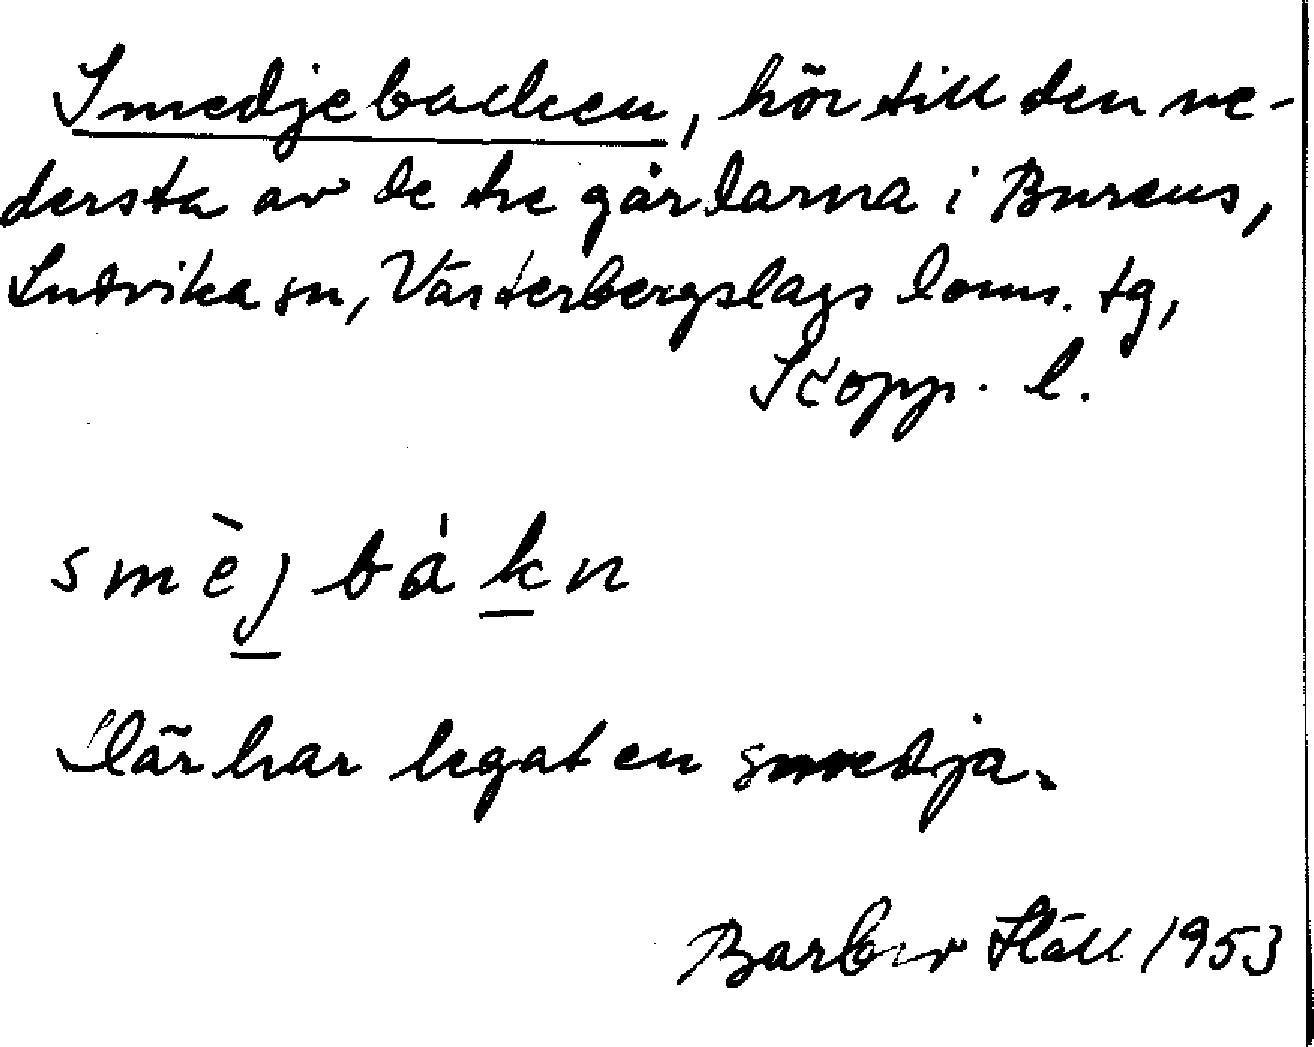 Smedjebacken, hör till den ne-
dersta av de tre gårdarna i Burens,
Ludvika sn, Västerbergslags doms. tg,
Kopp. l.
smèj bákn
Där har legat en smedja.
Barbro Ståll 1953